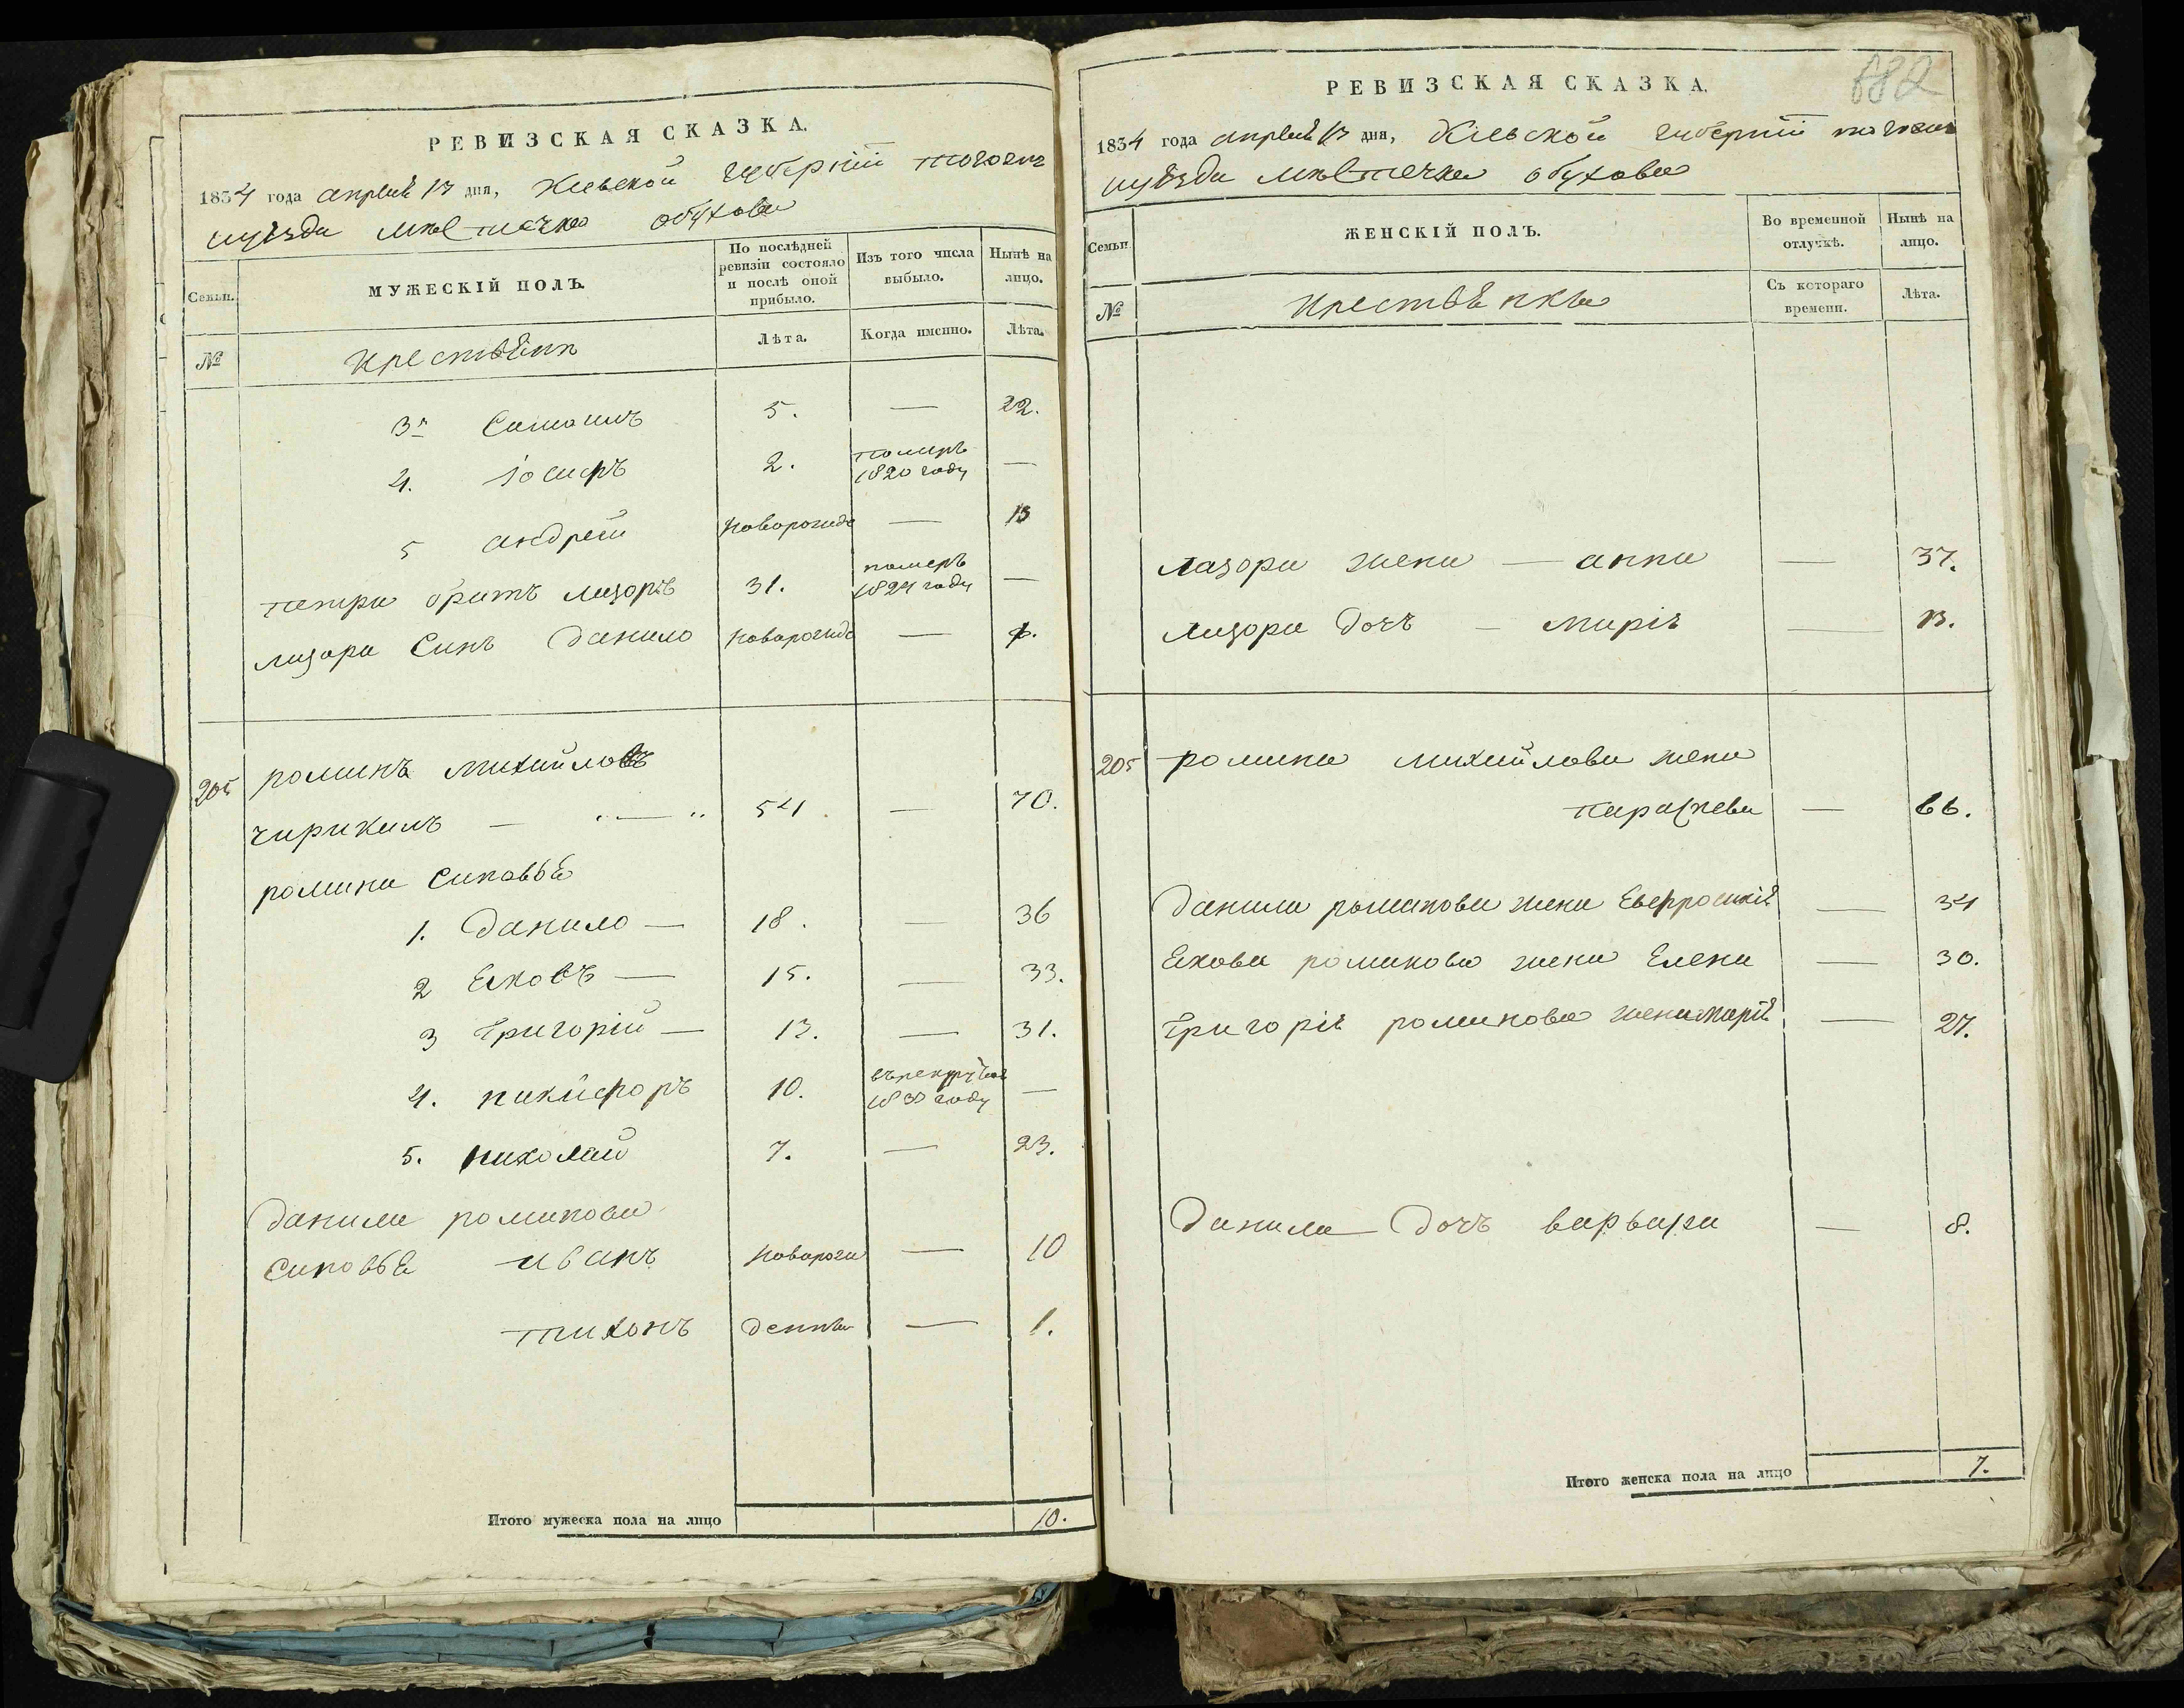 РЕВИЗСКАЯ СКАЗКА.
1834 года апреля 13 дня, Киевской губернии тогожъ
уезда местечка обухова
Семьи.
МУЖЕСКІЙ ПОЛЪ.
По послѣдней ревизіи состояло и послѣ оной прибыло.
Изъ того числа выбыло.
Нынѣ на лицо.
№
Лѣта.
Когда именно.
Лѣта.
3й 5. — 22.
4. Іосифъ 2. померъ 1820 году —
5 андрей новорожде — 13
петра братъ лазоръ 31. померъ 1824 году —
лазора Синъ данило новорожде —
205 романъ михайловъ
54. — 70.
романа Синовья
1. данило — 18. — 36
2 Еяковъ — 15. — 33.
3 Григорій — 13. — 31.
4. никифоръ 10. —
5. николай 7. — 23.
данила романова
Синовья иванъ новорож — 10
тихонъ денны — 1.
Итого мужеска пола на лицо 10.
682
РЕВИЗСКАЯ СКАЗКА.
1834 года апреля 13 дня, Киевской губернии тогожъ
уезда местечка обухова
Семьи.
ЖЕНСКІЙ ПОЛЪ.
Во временной отлучкѣ.
Нынѣ на лицо.
№
крестьянки
Съ котораго времени.
Лѣта.
лазора жена — анна — 37.
лазора дочъ — марія — 13.
205 романа михайлова жена
параскева — 66.
данила романова жена Евфросинія — 34
Еякова романова жена Елена — 30.
Григорія романова жена марія — 27.
данила дочъ варвара — 8.
Итого женска пола на лицо 7.